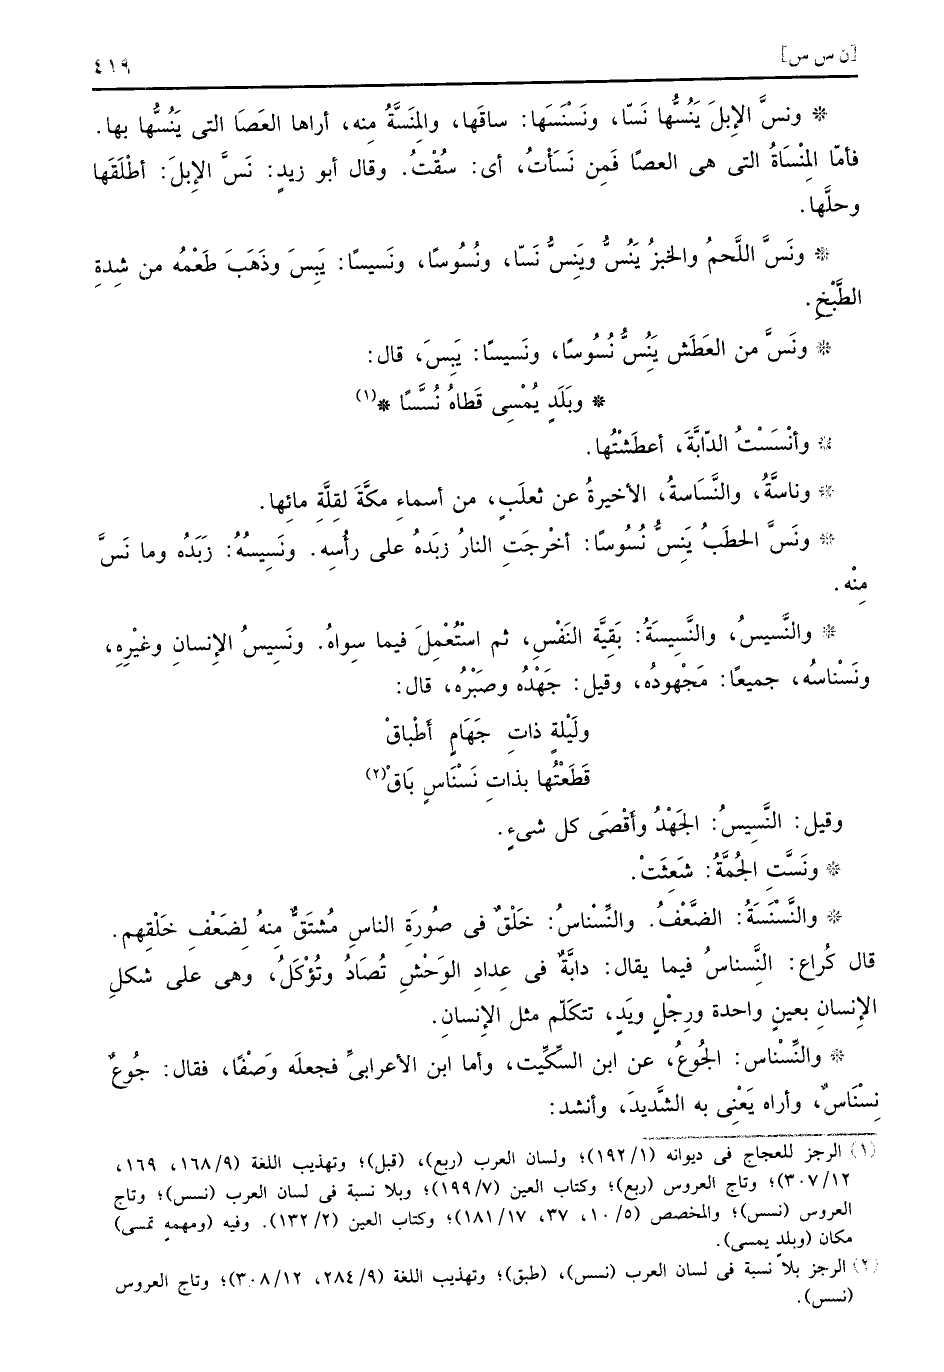 [ن س س] ٤١٩
* ونسَّ الإبلَ يَنُسُّها نَسّا، ونَسْنَسَها: ساقَها، والمِنَسَّةُ منه، أراها العَصَا التى يَنُسُّها بها.
فأمّا المِنْساَةُ التى هى العصا فَمِن نَسَأْتُ، أى: سُقْتُ. وقال أبو زيدٍ: نَسَّ الإبلَ: أطْلَقَها
وحلَّها.
* ونَسَّ اللَّحمُ والخبزُ يَنُسُّ ويَنِسُّ نَسّا، ونُسُوسًا، ونَسيسًا: يَبِسَ وذَهَبَ طَعْمُه من شدةِ
الطَّبْخِ.
* ونَسَّ من العَطَش يَنِسُّ نُسُوسًا، ونَسيسًا: يَبِسَ، قال:
* وبَلَدٍ يُمْسِى قَطاهُ نُسَّسًا *(١)
* وأنْسَسْتُ الدّابَّةَ، أعطَشْتُها.
* وناسَّةُ، والنَّسَاسةُ، الأخيرةُ عن ثعلَبٍ، من أسماءِ مكَّةَ لقِلَّةِ مائِها.
* ونَسَّ الحطَبُ يَنِسُّ نُسُوسًا: أخْرجَتِ النارُ زبَدهُ على رأْسِه. ونَسِيسُهُ: زَبَدُه وما نَسَّ
مِنْه.
* والنَّسيسُ، والنَّسِيسَةُ: بَقِيَّة النَفْسِ، ثم اسْتُعْمِلَ فيما سِواهُ. ونَسِيسُ الإنسانِ وغيْرِهِ،
ونَسْناسُه، جميعًا: مَجْهودُه، وقيل: جَهْدُه وصَبْرُه، قال:
ولَيْلةٍ ذاتِ جَهَامٍ أَطْباقْ
قَطَعْتُها بذاتِ نَسْنَاسٍ بَاقْ(٢)
وقيل: النَّسِيسُ: الجَهْدُ وأَقْصَى كل شىءٍ.
* ونَسَّتِ الجُمَّةُ: شَعَثَتْ.
* والنَّسْنَسَةُ: الضَّعْفُ. والنِّسْناسُ: خَلْقٌ فى صورَةِ الناسِ مُشتَقٌّ مِنهُ لضَعْفِ خَلْقِهم.
قال كُراع: النَّسناسُ فيما يقال: دابَّةٌ فى عِدادِ الوَحْشِ تُصَادُ وتُؤْكَلُ، وهى على شكلِ
الإنسانِ بعينٍ واحدة ورِجْلٍ ويَدٍ، تتكَلّم مثل الإنسانِ.
* والنِّسْناس: الجُوعُ، عن ابن السكِّيت، وأما ابن الأعرابىِّ فجعلَه وَصْفًا، فقال: جُوعٌ
نِسْنَاسٌ، وأراه يَعْنِى به الشَّديدَ، وأنشد:
(١) الرجز للعجاج فى ديوانه (١/ ١٩٢)؛ ولسان العرب (ربع)، (قبل)؛ وتهذيب اللغة (٩/ ١٦٨، ١٦٩،
١٢/ ٣٠٧)؛ وتاج العروس (ربع)؛ وكتاب العين (٧/ ١٩٩)؛ وبلا نسبة فى لسان العرب (نسس)؛ وتاج
العروس (نسس)؛ والمخصص (٥/ ١٠، ٣٧، ١٧/ ١٨١)؛ وكتاب العين (٢/ ١٣٢). وفيه (ومهمهٍ تمسى)
مكان (وبلدٍ يمسى).
(٢) الرجز بلا نسبة فى لسان العرب (نسس)، (طبق)؛ وتهذيب اللغة (٩/ ٢٨٤، ١٢/ ٣٠٨)؛ وتاج العروس
(نسس).